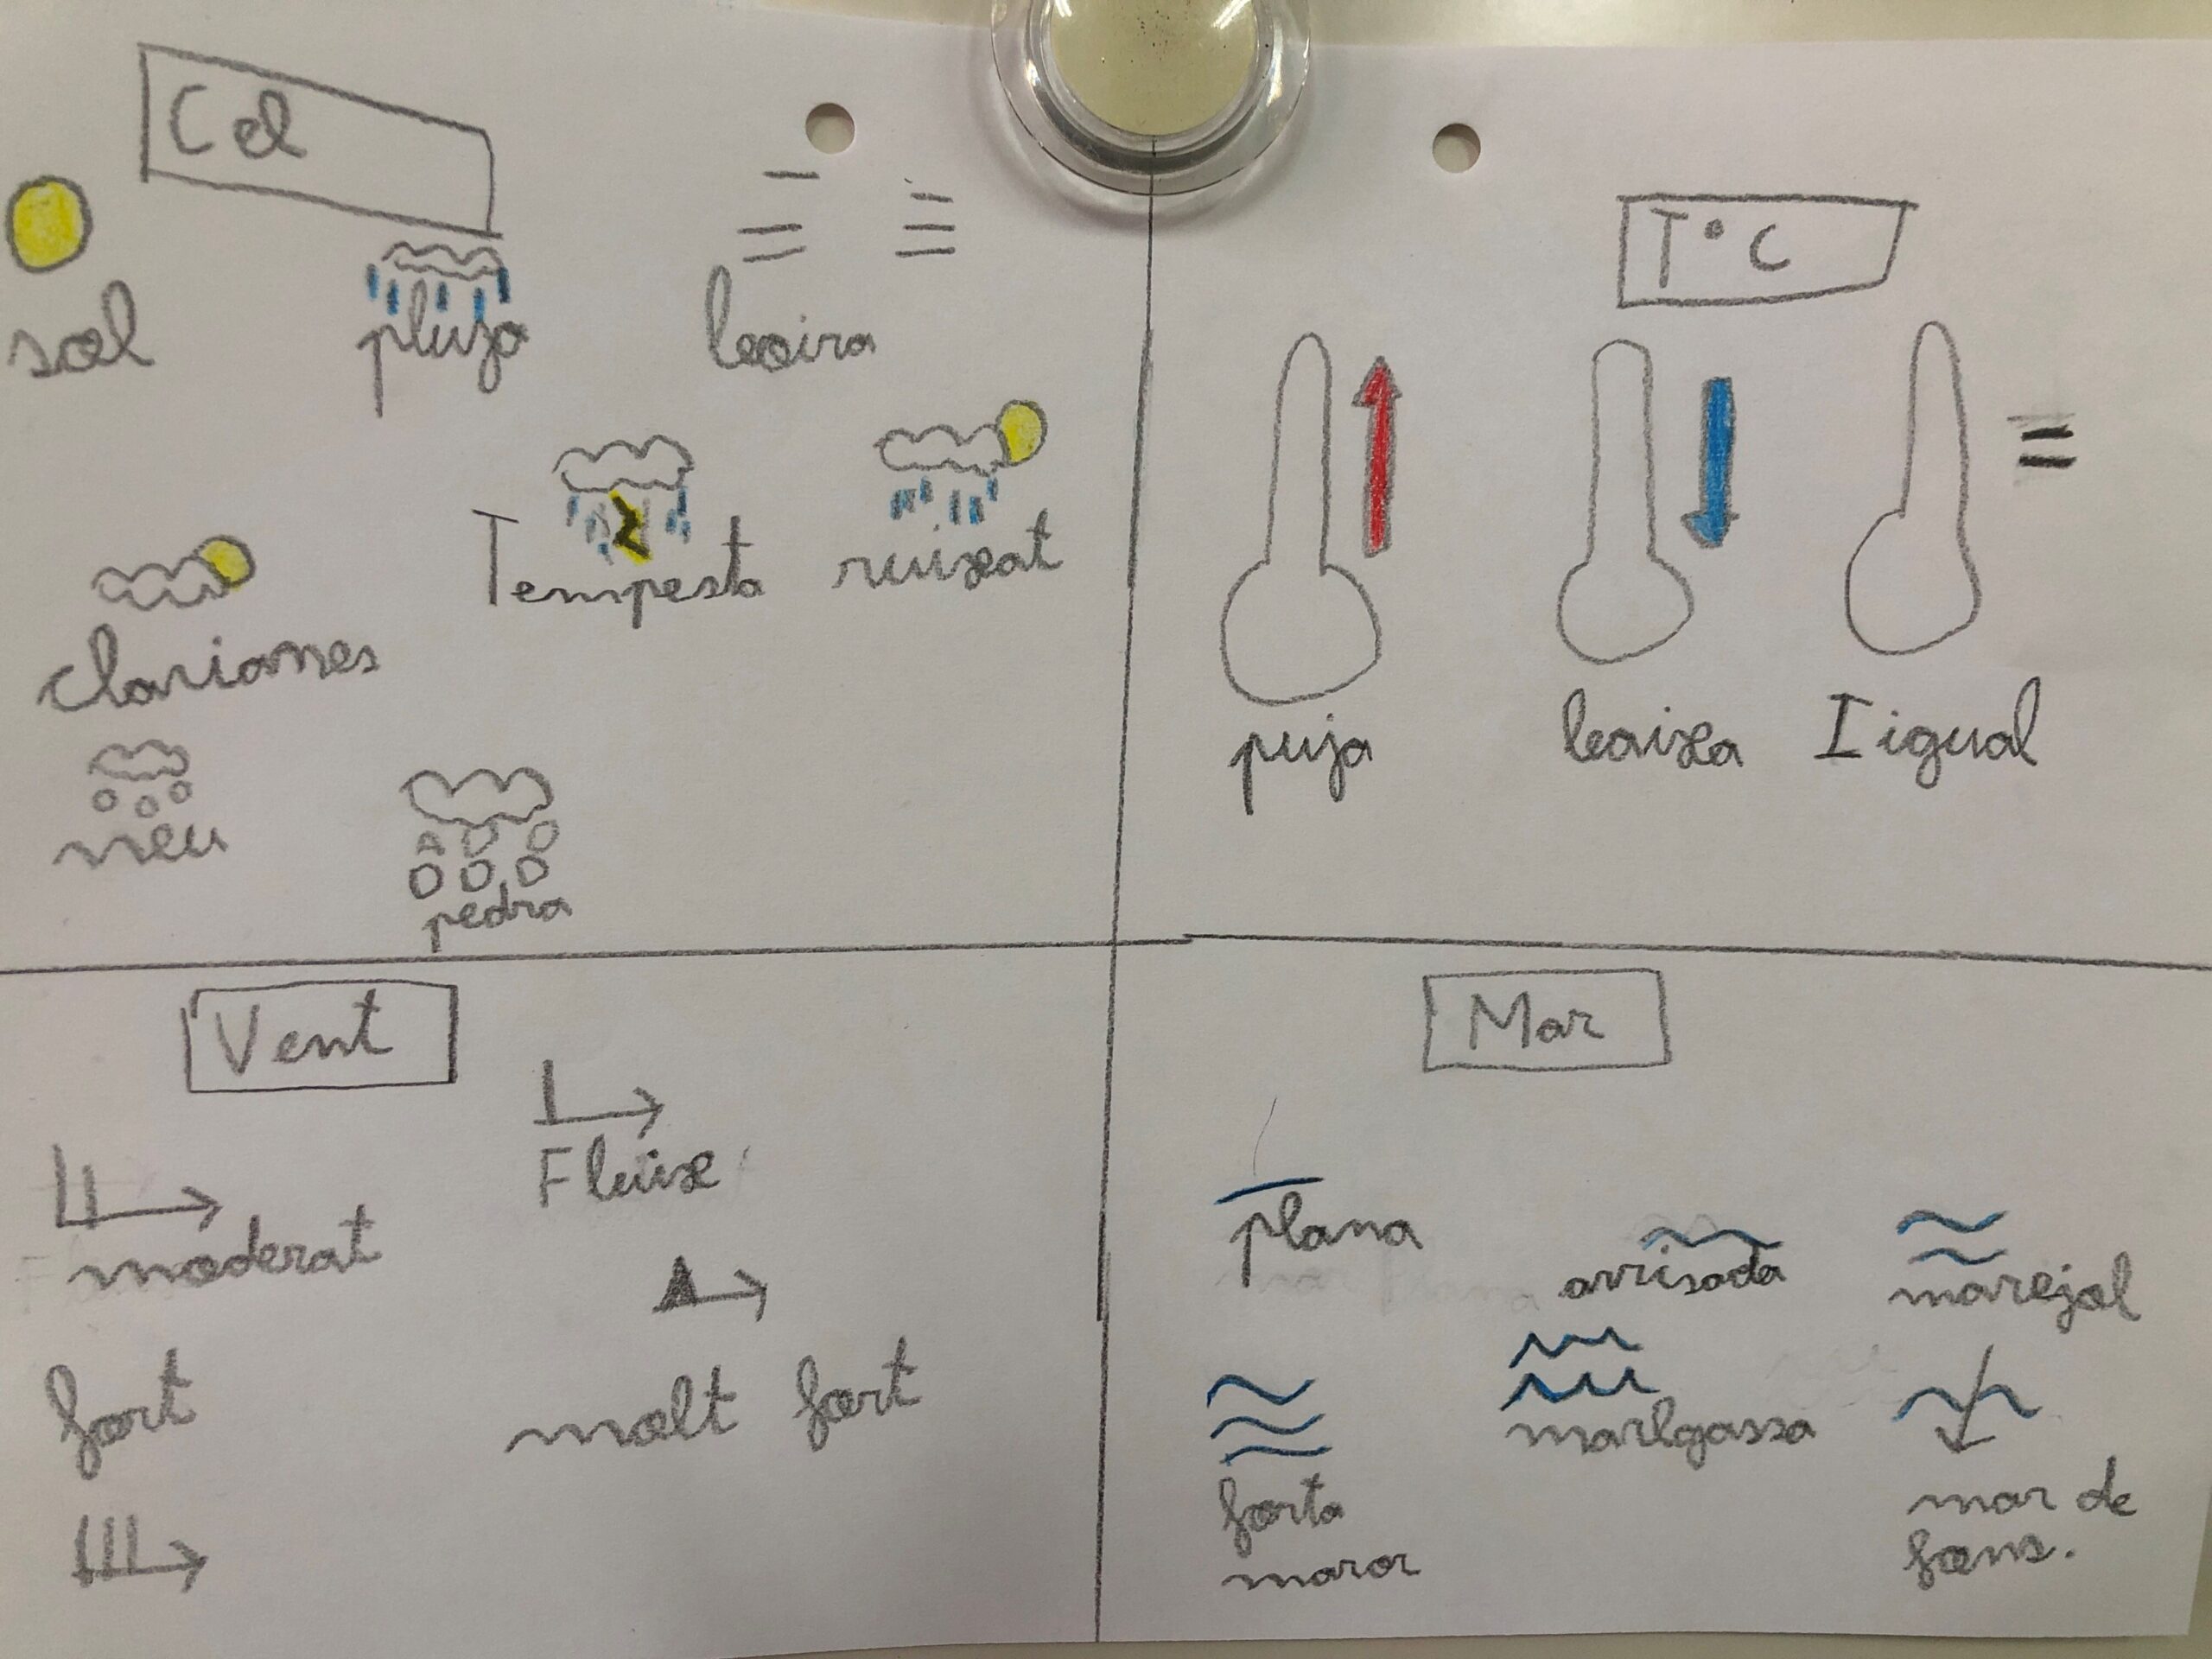 Cel
sol
pluja
boira
Tempesta
ruixat
clarianes
neu
pedra
T°C
puja
baixa
I igual
Vent
Fluix
moderat
fort
molt fort
Mar
plana
arrisada
marejol
forta
maror
marlgassa
mar de
fons.